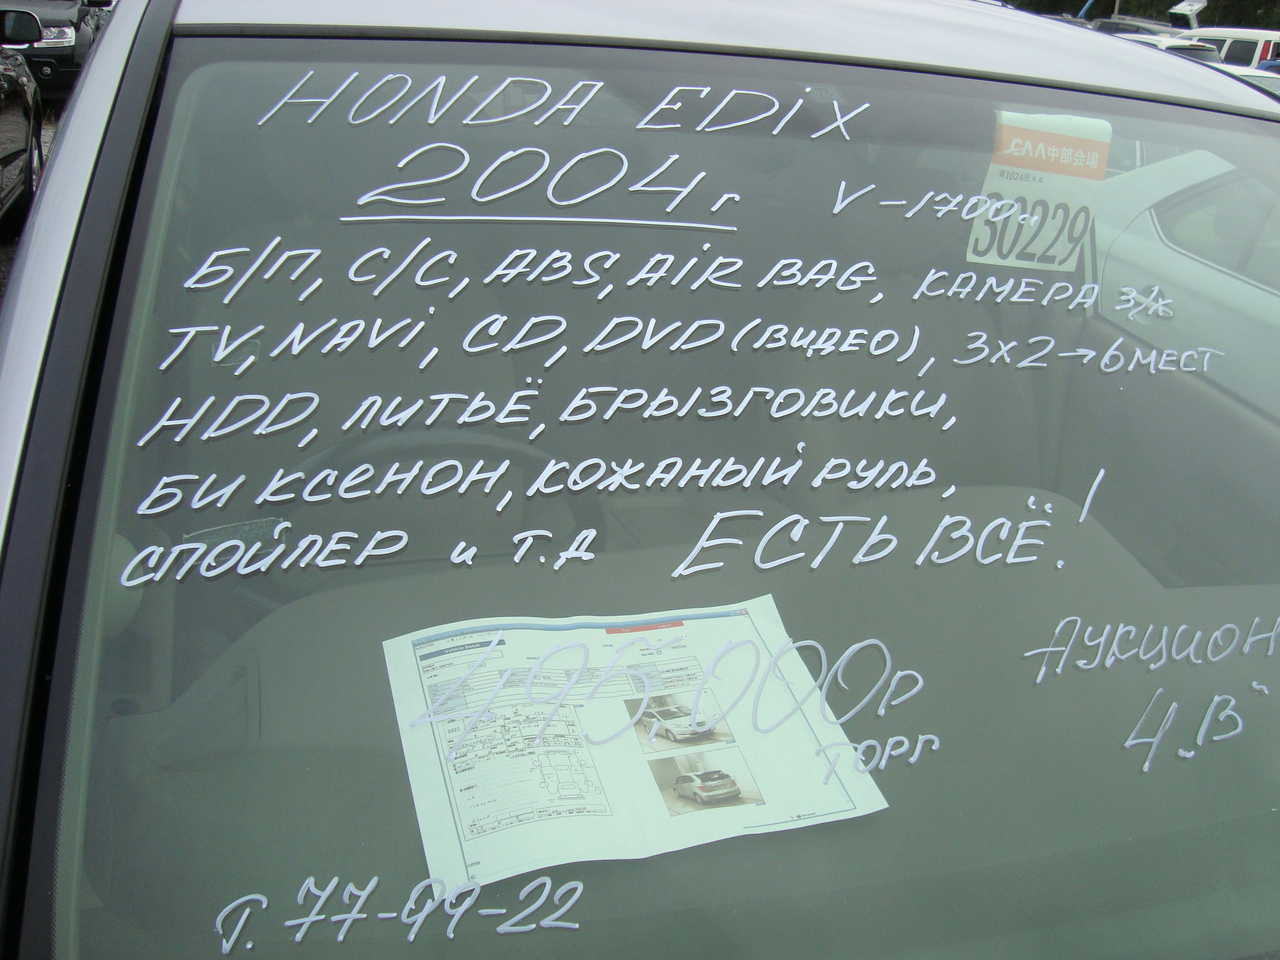 HONDA EDiX
2004 г. V-1700
CAA中部会場
30229
Б/П, С/С, ABS, AiR BAG, КАМЕРА З/Х
TV, NAVi, CD, DVD (ВИДЕО), 3x2→6 МЕСТ
HDD, ЛИТЬЁ, БРЫЗГОВИКИ,
БИ КСЕНОН, КОЖАНЫЙ РУЛЬ,
СПОЙЛЕР и Т.Д ЕСТЬ ВСЁ!
495.000р
ТОРГ
АУКЦИОН
4.В
Т. 77-99-22